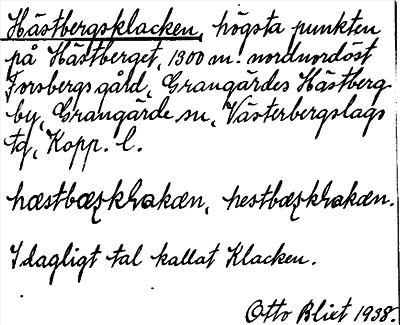 Hästbergsklacken, högsta punkten
på Hästberget, 1300 m. nordnordöst
Forsbergs gård, Grangärdes Hästberg
by, Grangärde sn, Västerbergslags
tg, Kopp. l.
Idagligt tal kallat Klacken.
Otto Blixt 1938.